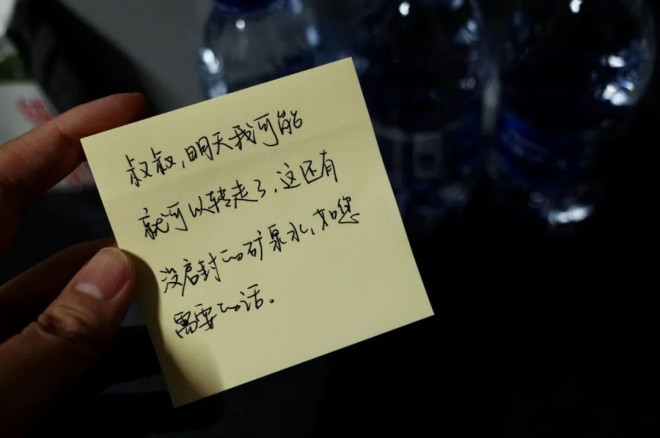 叔叔，明天我可能
就可以转走了，这还有
没启封的矿泉水，如您
需要的话。